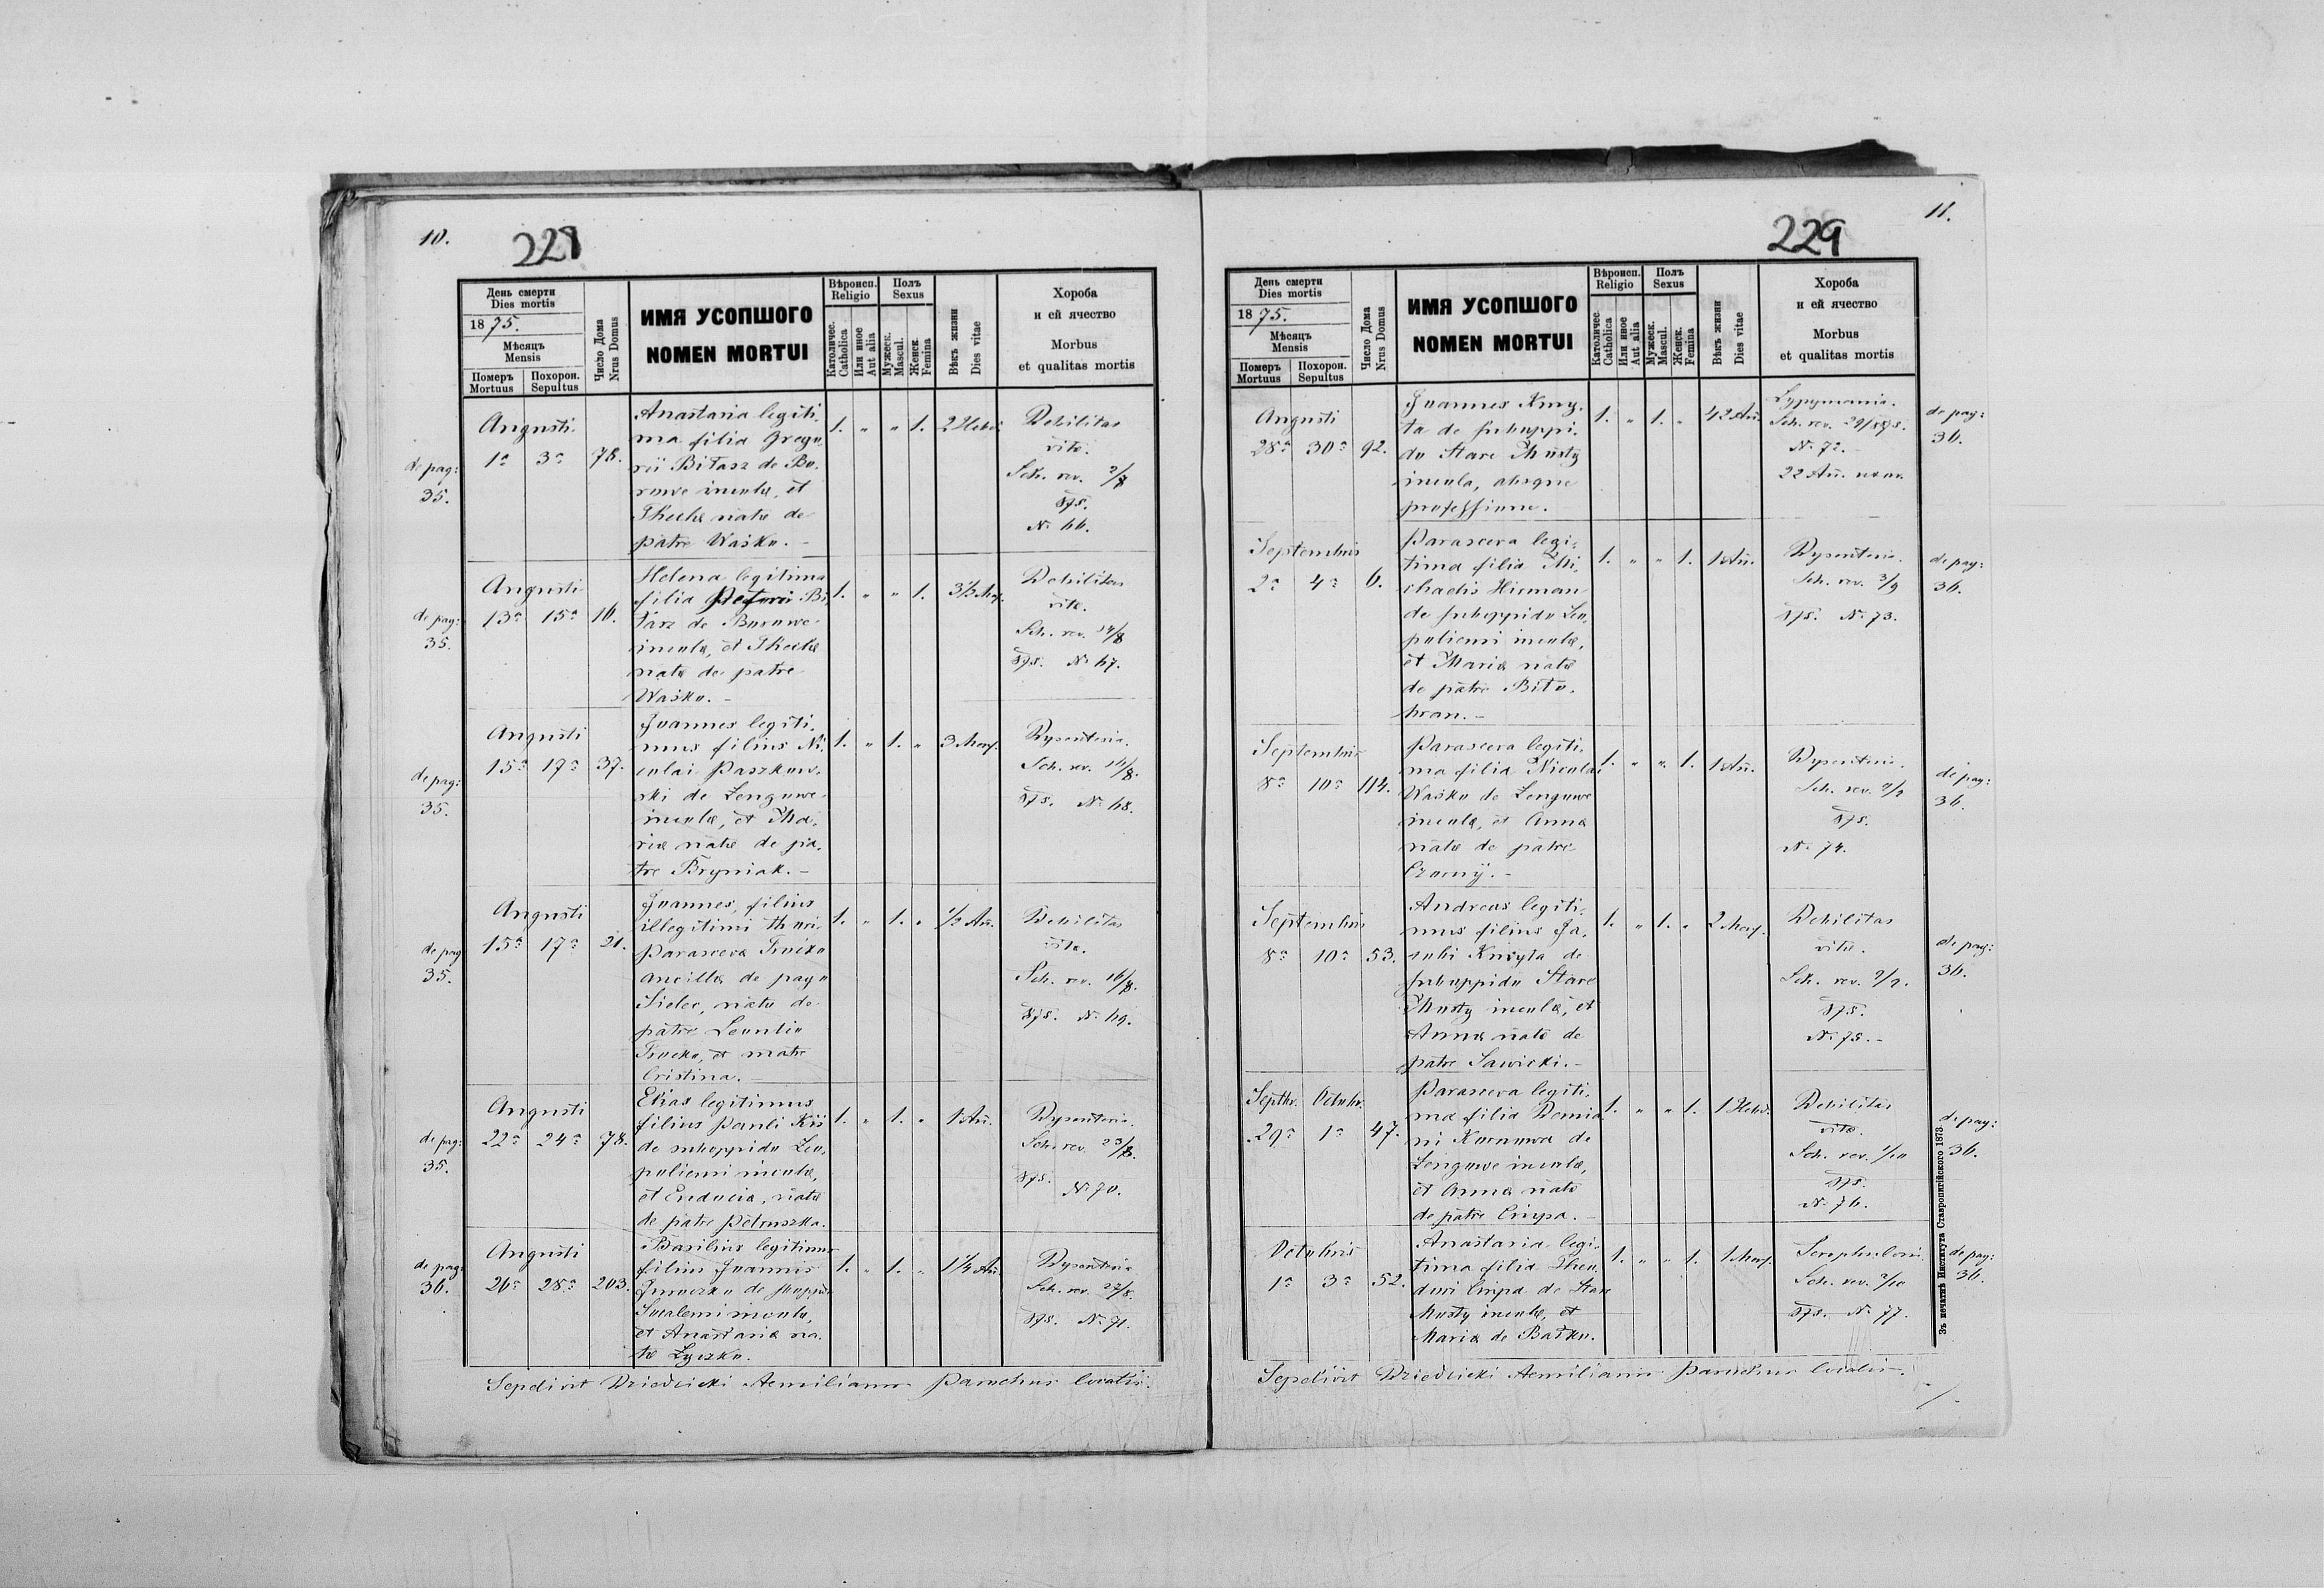 10.
228
День смерти
Dies mortis
1875.
Мѣсяцъ
Mensis
Померъ
Mortuus
Похорон.
Sepultus
Число Дома
Nrus Domus
ИМЯ УСОПШОГО
NOMEN MORTUI
Вѣроисп.
Religio
Католичес.
Catholica
Или иное
Aut alia
Полъ
Sexus
Мужеск.
Mascul.
Женск.
Femina
Вѣкъ жизни
Dies vitae
Хороба
и ей ячество
Morbus
et qualitas mortis
de pag:
35.
Augusti
1a 3a 78.
Anastasia legiti-
ma filia Grego-
rii Bitasz de Bo-
rowe incolæ, et
Theclæ natæ de
patre Waśko. -
1. " " 1.
2 Hebd.
Debilitas
vitæ.
Sch. rev. 2/8
875.
No 66.
de pag:
35.
Augusti
13a 15a 16.
Helena legitima
filia Petri Bi-
tasz de Borowe
incolæ, et Theclæ
natæ de patre
Waśko. -
1. " " 1.
3 1/2 Mens.
Debilitas
vitæ.
Sch. rev. 14/8
875. No 67.
de pag:
35.
Augusti
15a 17a 37.
Joannes legiti-
mus filius Ni-
colai Paszkow-
ski de Zengowe
incolæ, et Ma-
riæ natæ de pa-
tre Bryniak. -
1. " 1. "
3 Mens.
Dysenteria.
Sch. rev. 16/8.
875. No 68.
de pag
35.
Augusti
15a 17a 21.
Joannes, filius
illegitimi thori
Parascevæ
ancillæ de pago
Sielec, natæ de
patre Leontio
et matre
Cristina. -
1. " 1. "
1/2 An.
Debilitas
vitæ.
Sch. rev. 16/8.
875. No 69.
de pag:
35.
Augusti
22a 24a 78.
Elias legitimus
filius Pauli Kiś
de suboppido Leo-
poliensi incolæ,
et Eudociæ, natæ
de patre Petruszka.
1. " 1. "
1 An.
Dysenteria.
Sch. rev. 23/8.
875. No 70.
de pag
36.
Augusti
26a 28a 203.
Basilius legitimus
filius Joannis
de suboppido
incolæ,
et Anastasiæ na-
tæ Lyszko.
1. " 1. "
1 1/2 An.
Dysenteria
Sch. rev. 27/8.
875. No 71.
Sepelivit Dziedzicki Aemilianus Parochus localis.
11.
229
День смерти
Dies mortis
1875.
Мѣсяцъ
Mensis
Померъ
Mortuus
Похорон.
Sepultus
Число Дома
Nrus Domus
ИМЯ УСОПШОГО
NOMEN MORTUI
Вѣроисп.
Religio
Католичес.
Catholica
Или иное
Aut alia
Полъ
Sexus
Мужеск.
Mascul.
Женск.
Femina
Вѣкъ жизни
Dies vitae
Хороба
и ей ячество
Morbus
et qualitas mortis
Augusti
28a 30a 92.
Joannes Kmy-
ta de suboppi-
do Stare Musty
incola, absque
professione.
1. " 1. "
42 An.
Lypymania.
Sch. rev. 29/8 875.
No 72.
22 An.
de pag:
36.
Septembris
2a 4a 6.
Parasceva legi-
tima filia Mi-
chaelis Hirman
de suboppido Leo-
poliensi incolæ,
et Mariæ natæ
de patre Bito-
bran. -
1. " " 1.
1 An.
Dysenteria.
Sch. rev. 3/9
875. No 73.
de pag:
36.
Septembris
8a 10a 114.
Parasceva legiti-
ma filia Nicolai
Waśko de Zengowe
incolæ, et Annæ
natæ de patre
Czarny. -
1. " " 1.
1 An.
Dysenteria.
Sch. rev. 9/9
875.
No 74.
de pag:
36.
Septembris
8a 10a 53.
Andreas legiti-
mus filius Ja-
cobi Kmyta de
suboppido Stare
Musty incolæ, et
Annæ natæ de
patre Sawicki. -
1. " 1. "
2 Mens.
Debilitas
vitæ.
Sch. rev. 9/9.
875.
No 75. -
de pag:
36.
Septbr. Octobr.
29a 1a 47.
Parasceva legiti-
ma filia Damia-
ni Koronowa de
Zengowe incolæ,
et Annæ natæ
de patre Cinpa. -
1. " " 1.
1 Hebd.
Debilitas
vitæ.
Sch. rev. 1/10
875.
No 76.
de pag:
36.
Octobris
1a 3a 52.
Anastasia legi-
tima filia Theo-
dori Cinpa de Stare
Musty incolæ, et
Mariæ de Baśko.
1. " " 1.
1 Mens.
Sch. rev. 2/10
875. No 77.
de pag:
36.
Зъ печатнѣ Института Ставропигійского 1873.
Sepelivit Dziedzicki Aemilianus Parochus localis.